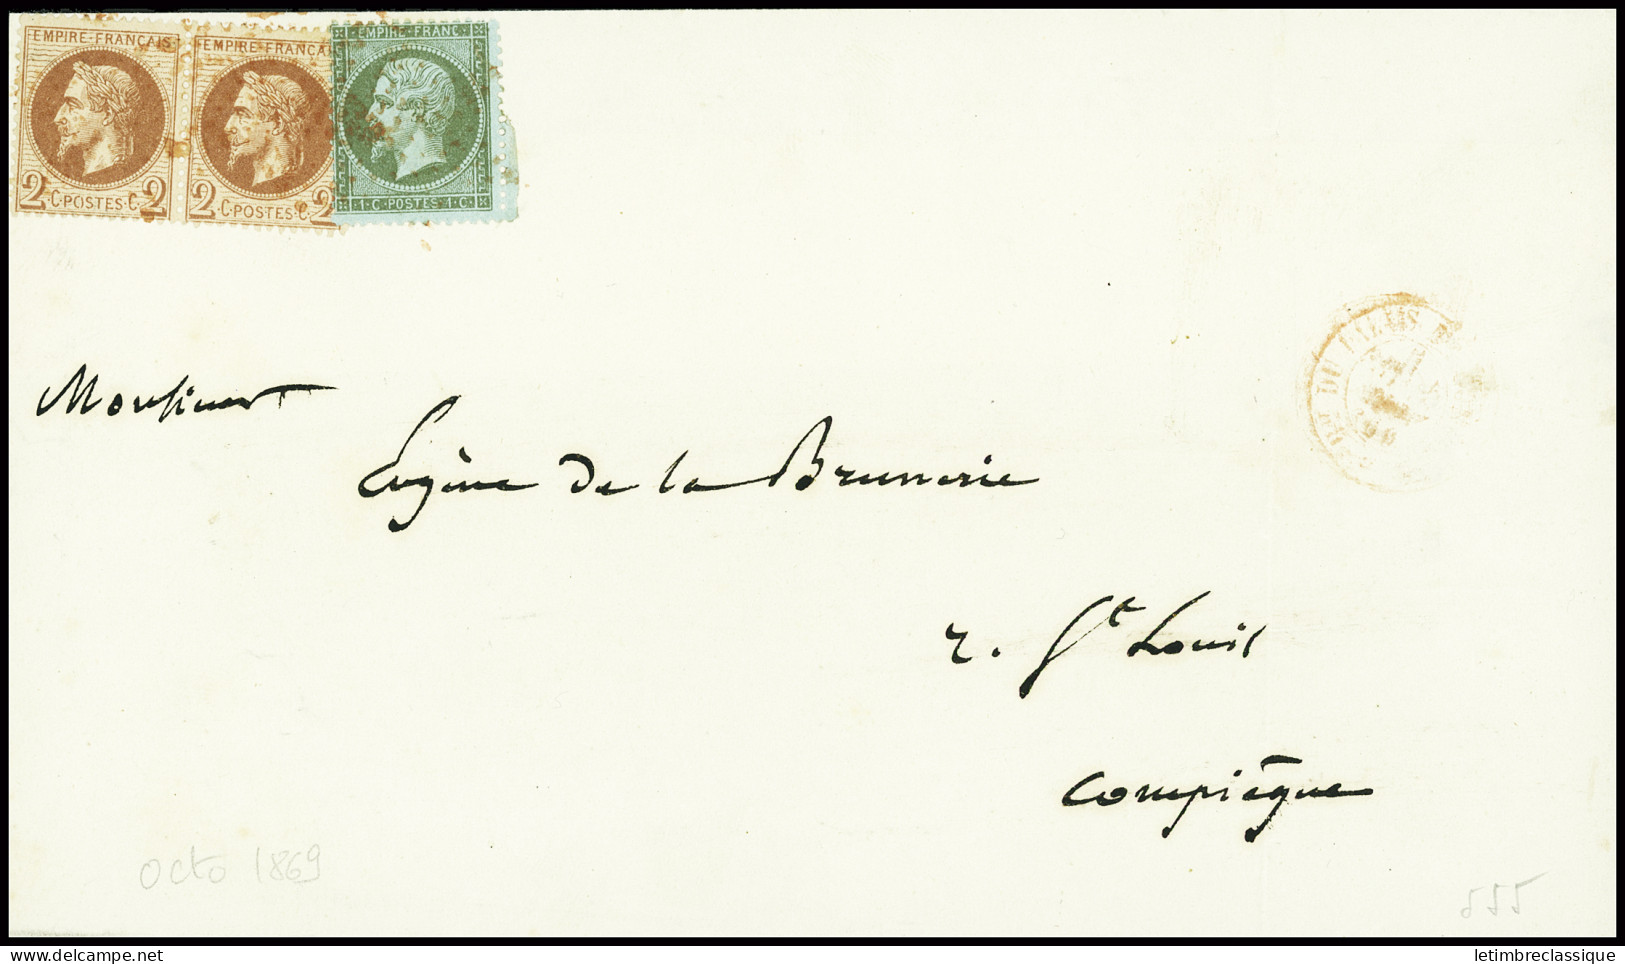 EMPIRE·FRANÇAIS
2 ·C·POSTES·C· 2
EMPIRE·FRANÇAI
2 ·C·POSTES·C· 2
EMPIRE·FRANC·
·1·C·POSTES·1·C·
DU PALAIS
Monsieur
Eugène de la Brunerie
r. St Louis
Compiègne
octo 1869
555
delcampe.net
letimbreclassique